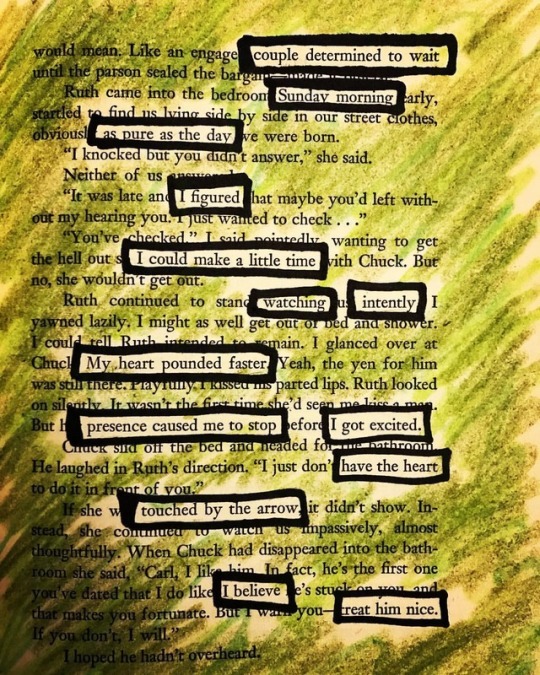 would mean. Like an engage couple determined to wait
until the parson sealed the bargain—made it
Ruth came into the bedroom Sunday morning early,
startled to find us lying side by side in our street clothes,
obviousl as pure as the day we were born.
“I knocked but you didn't answer,” she said.
Neither of us answered.
“It was late and I figured that maybe you'd left with-
out my hearing you. I just wanted to check . . .”
“You've checked,” I said pointedly, wanting to get
the hell out s I could make a little time with Chuck. But
no, she wouldn't get out.
Ruth continued to stand watching us intently I
yawned lazily. I might as well get out of bed and shower.
I could tell Ruth intended to remain. I glanced over at
Chuck My heart pounded faster. Yeah, the yen for him
was still there. Playfully I kissed his parted lips. Ruth looked
on silently. It wasn't the first time she'd seen me kiss a man.
But h presence caused me to stop before I got excited.
Chuck slid off the bed and headed for the bathroom.
He laughed in Ruth's direction. “I just don't have the heart
to do it in front of you.”
If she w touched by the arrow, it didn't show. In-
stead, she continued to watch us impassively, almost
thoughtfully. When Chuck had disappeared into the bath-
room she said, “Carl, I like him. In fact, he's the first one
you've dated that I do like I believe he's stuck on you, and
that makes you fortunate. But I warn you—treat him nice.
If you don't, I will.”
I hoped he hadn't overheard.